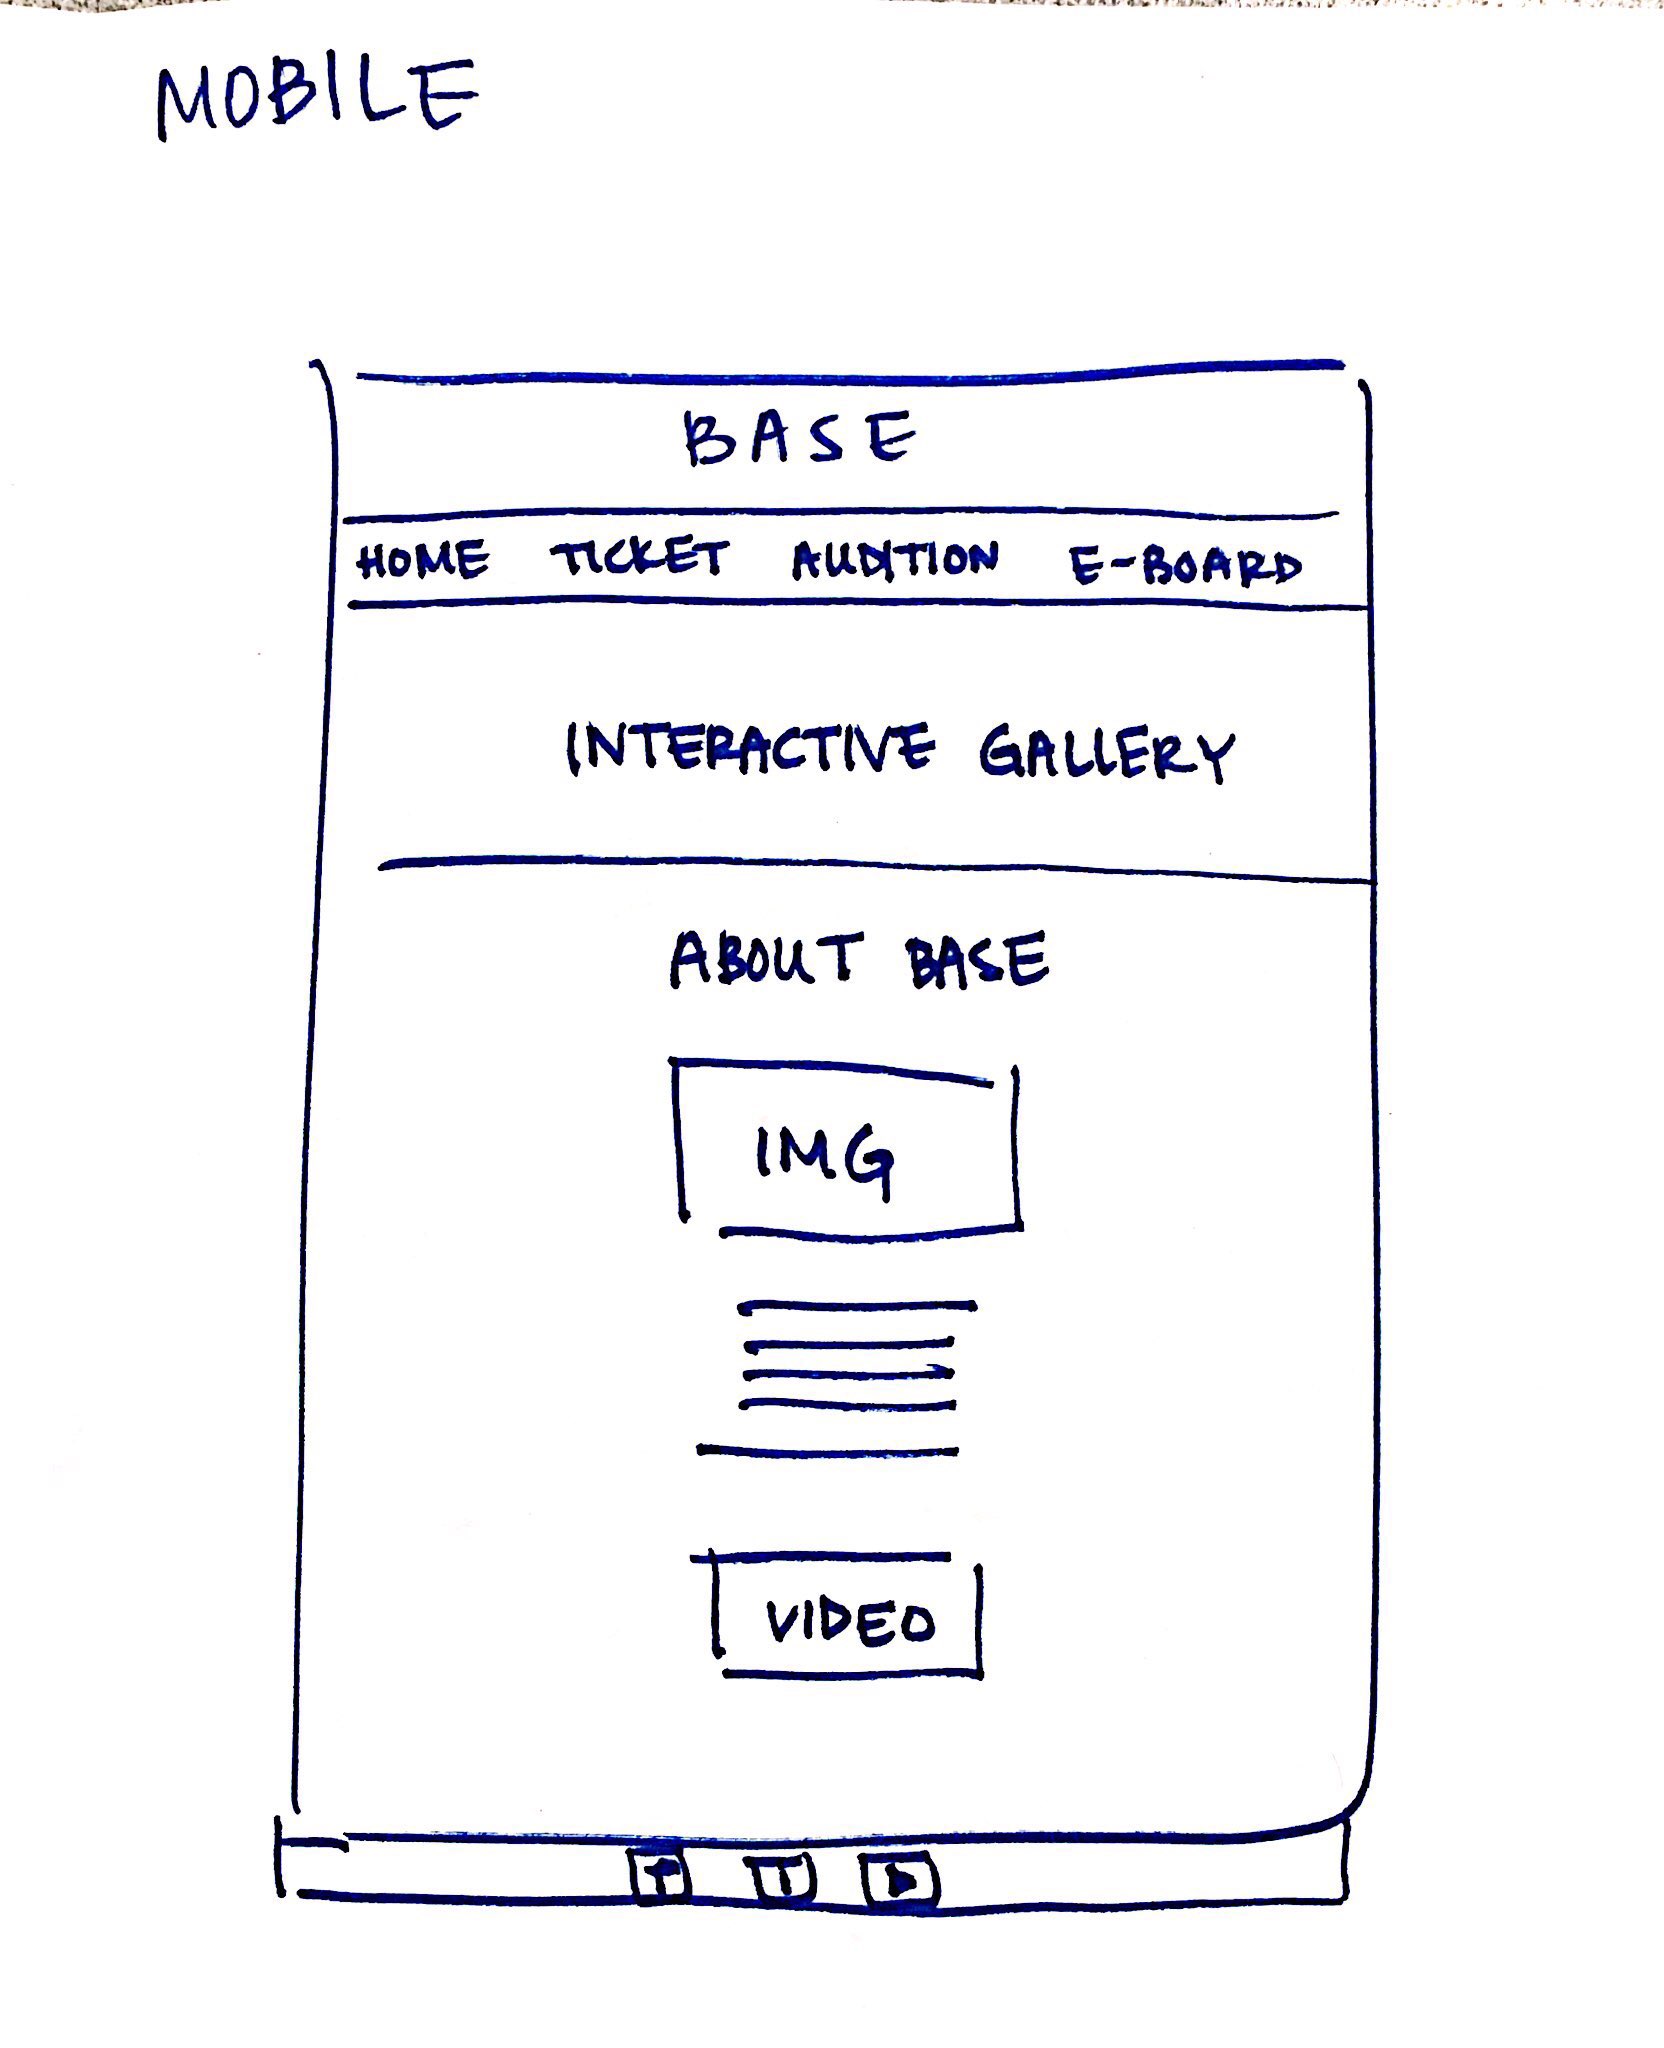 MOBILE
BASE
HOME TICKET AUDITION E-BOARD
INTERACTIVE GALLERY
ABOUT BASE
IMG
VIDEO
f T